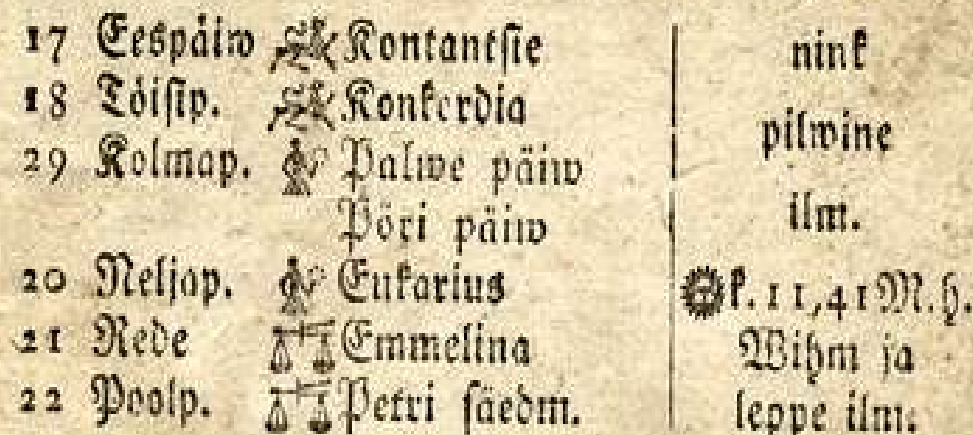 17 Eespäiw Kontantsie
18 Töisip. Konkerdia
29 Kolmap. Palwe päiw
Pöri päiw
20 Neljap. Eukarius
21 Rede Emmelina
22 Poolp. Petri säedm.
nink
pilwine
ilm.
k. 11,41 M. h.
Wihm ja
leppe ilm.